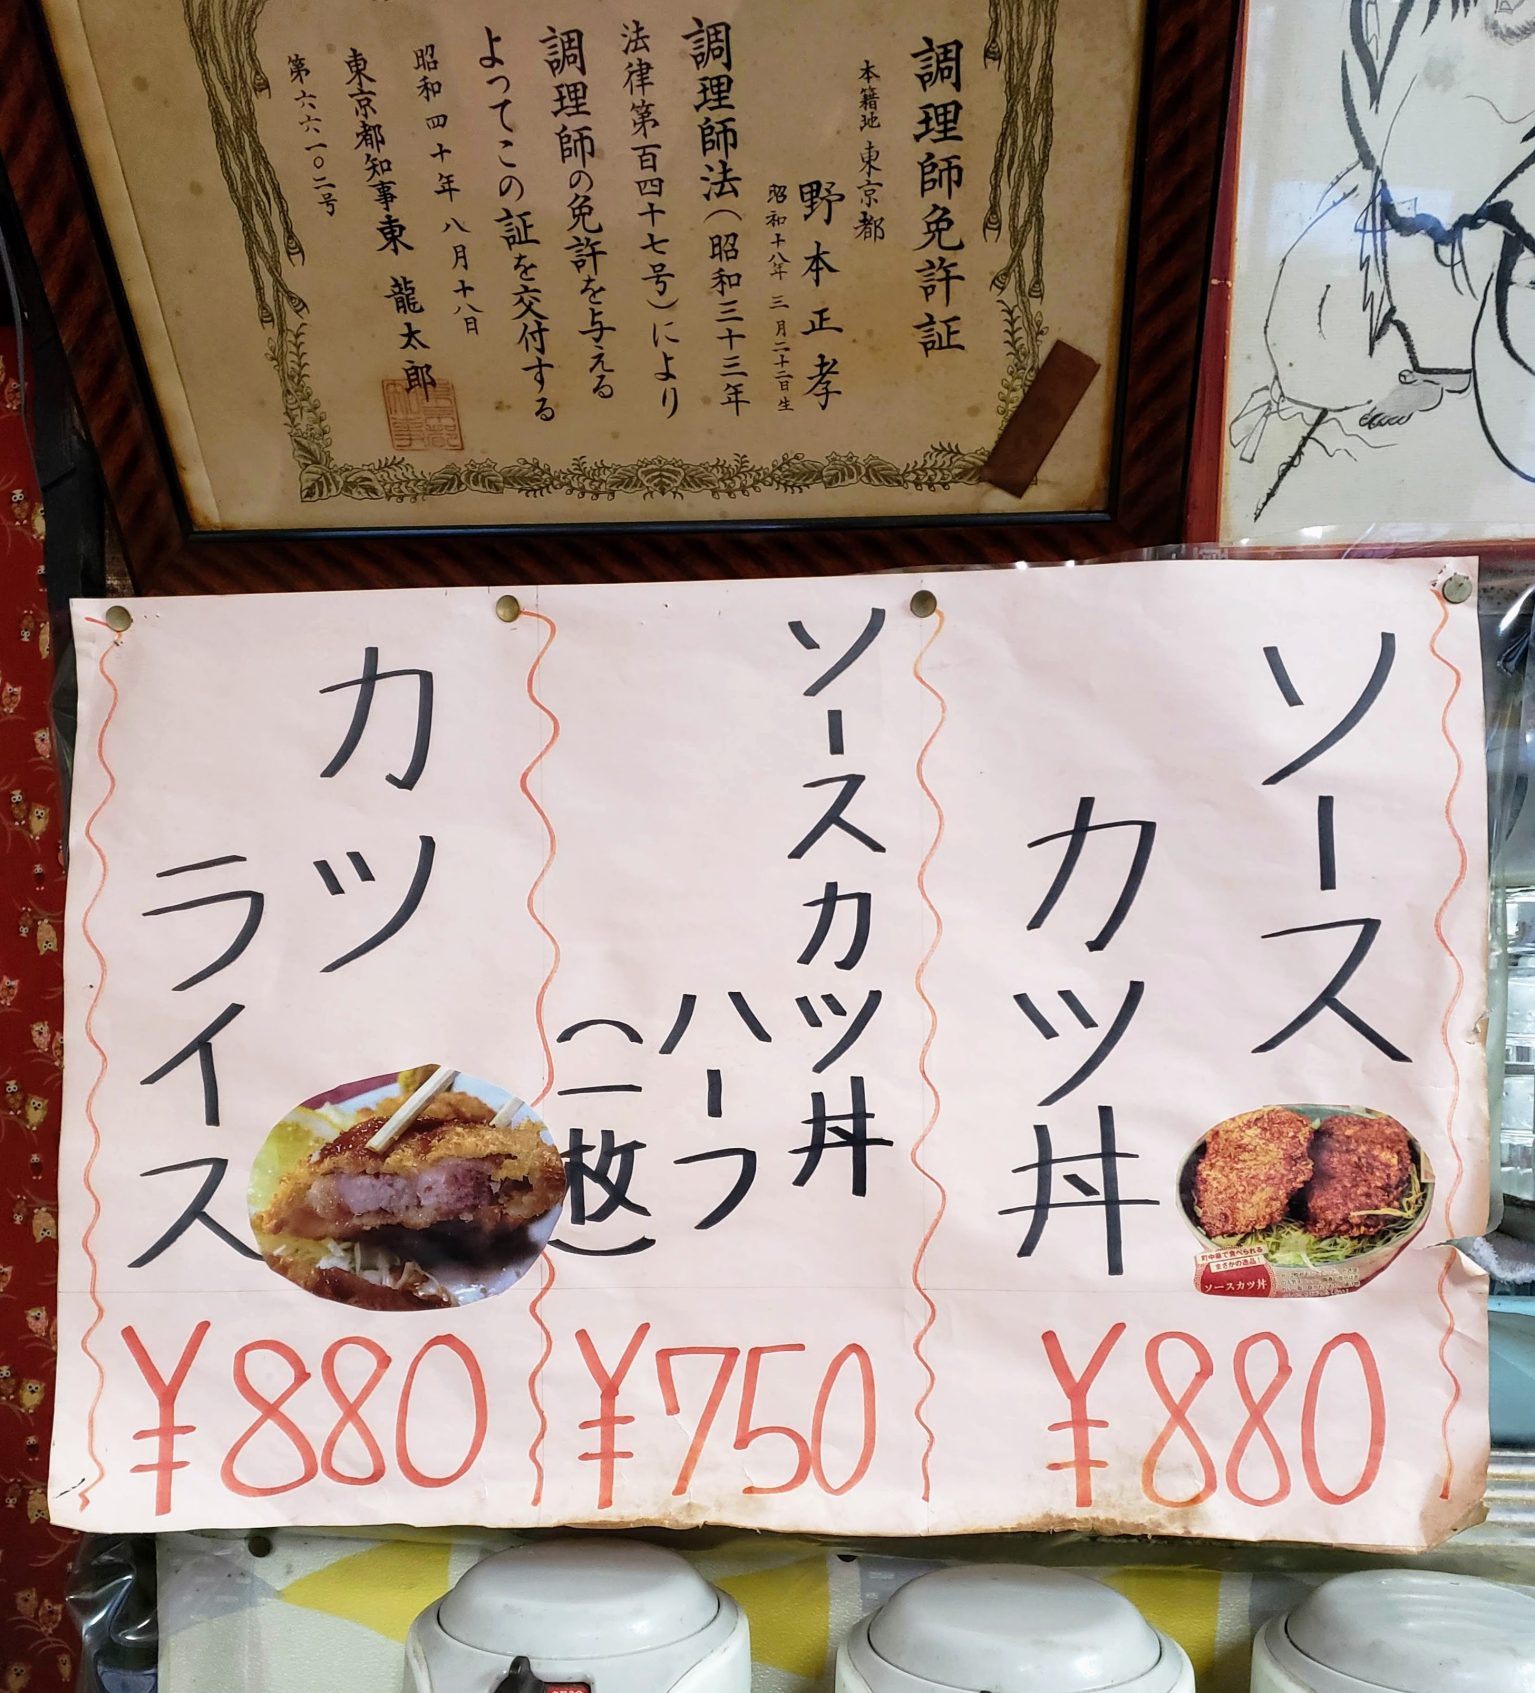 調理師免許証
本籍地 東京都
野本正孝
昭和十八年三月二十二日生
調理師法（昭和三十三年
法律第百四十七号）により
調理師の免許を与える
よってこの証を交付する
昭和四十年八月十八日
東京都知事 東龍太郎
第六六一〇二号
ソース
カツ丼
町中華で食べられる
まさかの逸品！
ソースカツ丼
¥880
ソースカツ丼
ハーフ
（一枚）
¥750
カツ
ライス
¥880